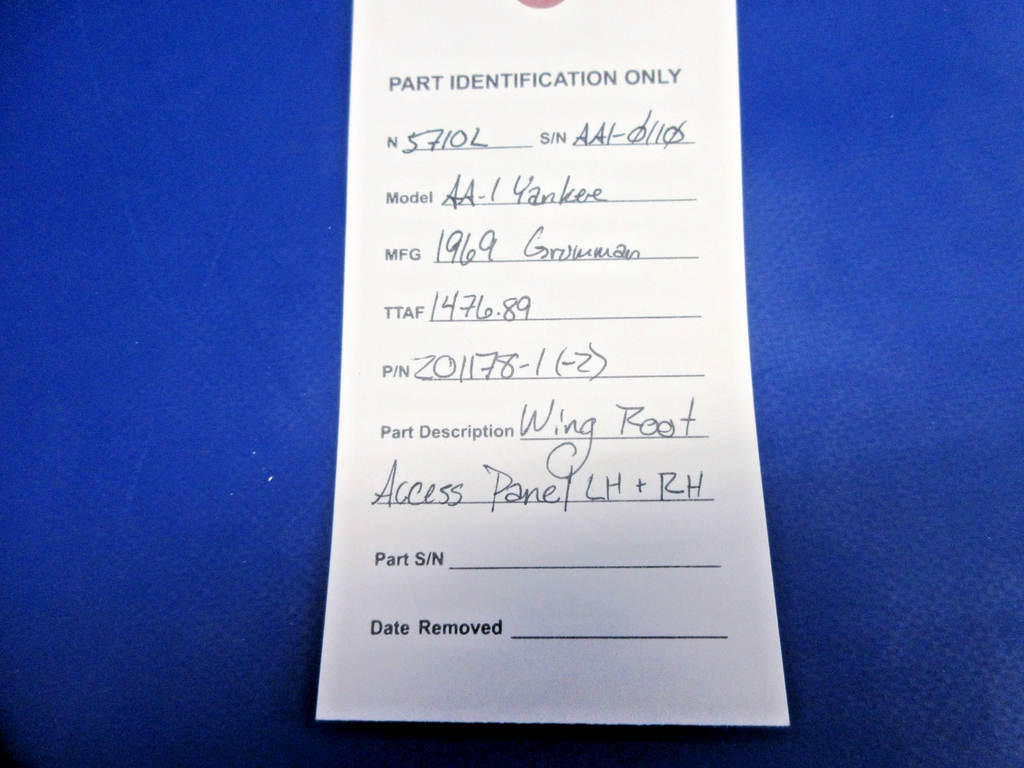 PART IDENTIFICATION ONLY
N 5710L S/N AA1-0110
Model AA-1 Yankee
MFG 1969 Grumman
TTAF 1476.89
P/N 201178-1 (-2)
Part Description Wing Root
Access Panel LH + RH
Part S/N
Date Removed